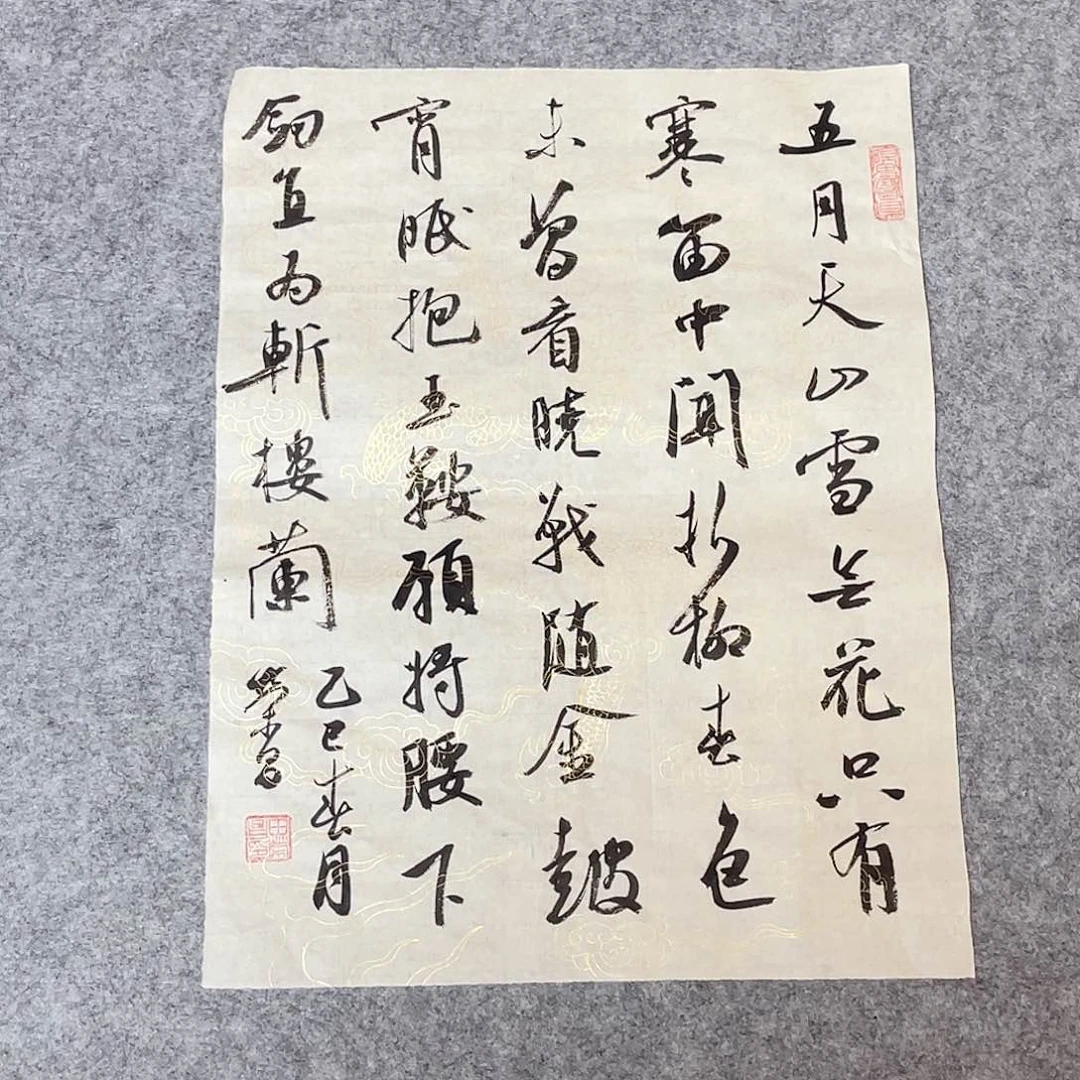 五月天山雪无花只有
寒笛中闻折柳春色
未曾看晓战随金鼓
宵眠抱玉鞍願将腰下
劍直为斬樓蘭
乙巳春月